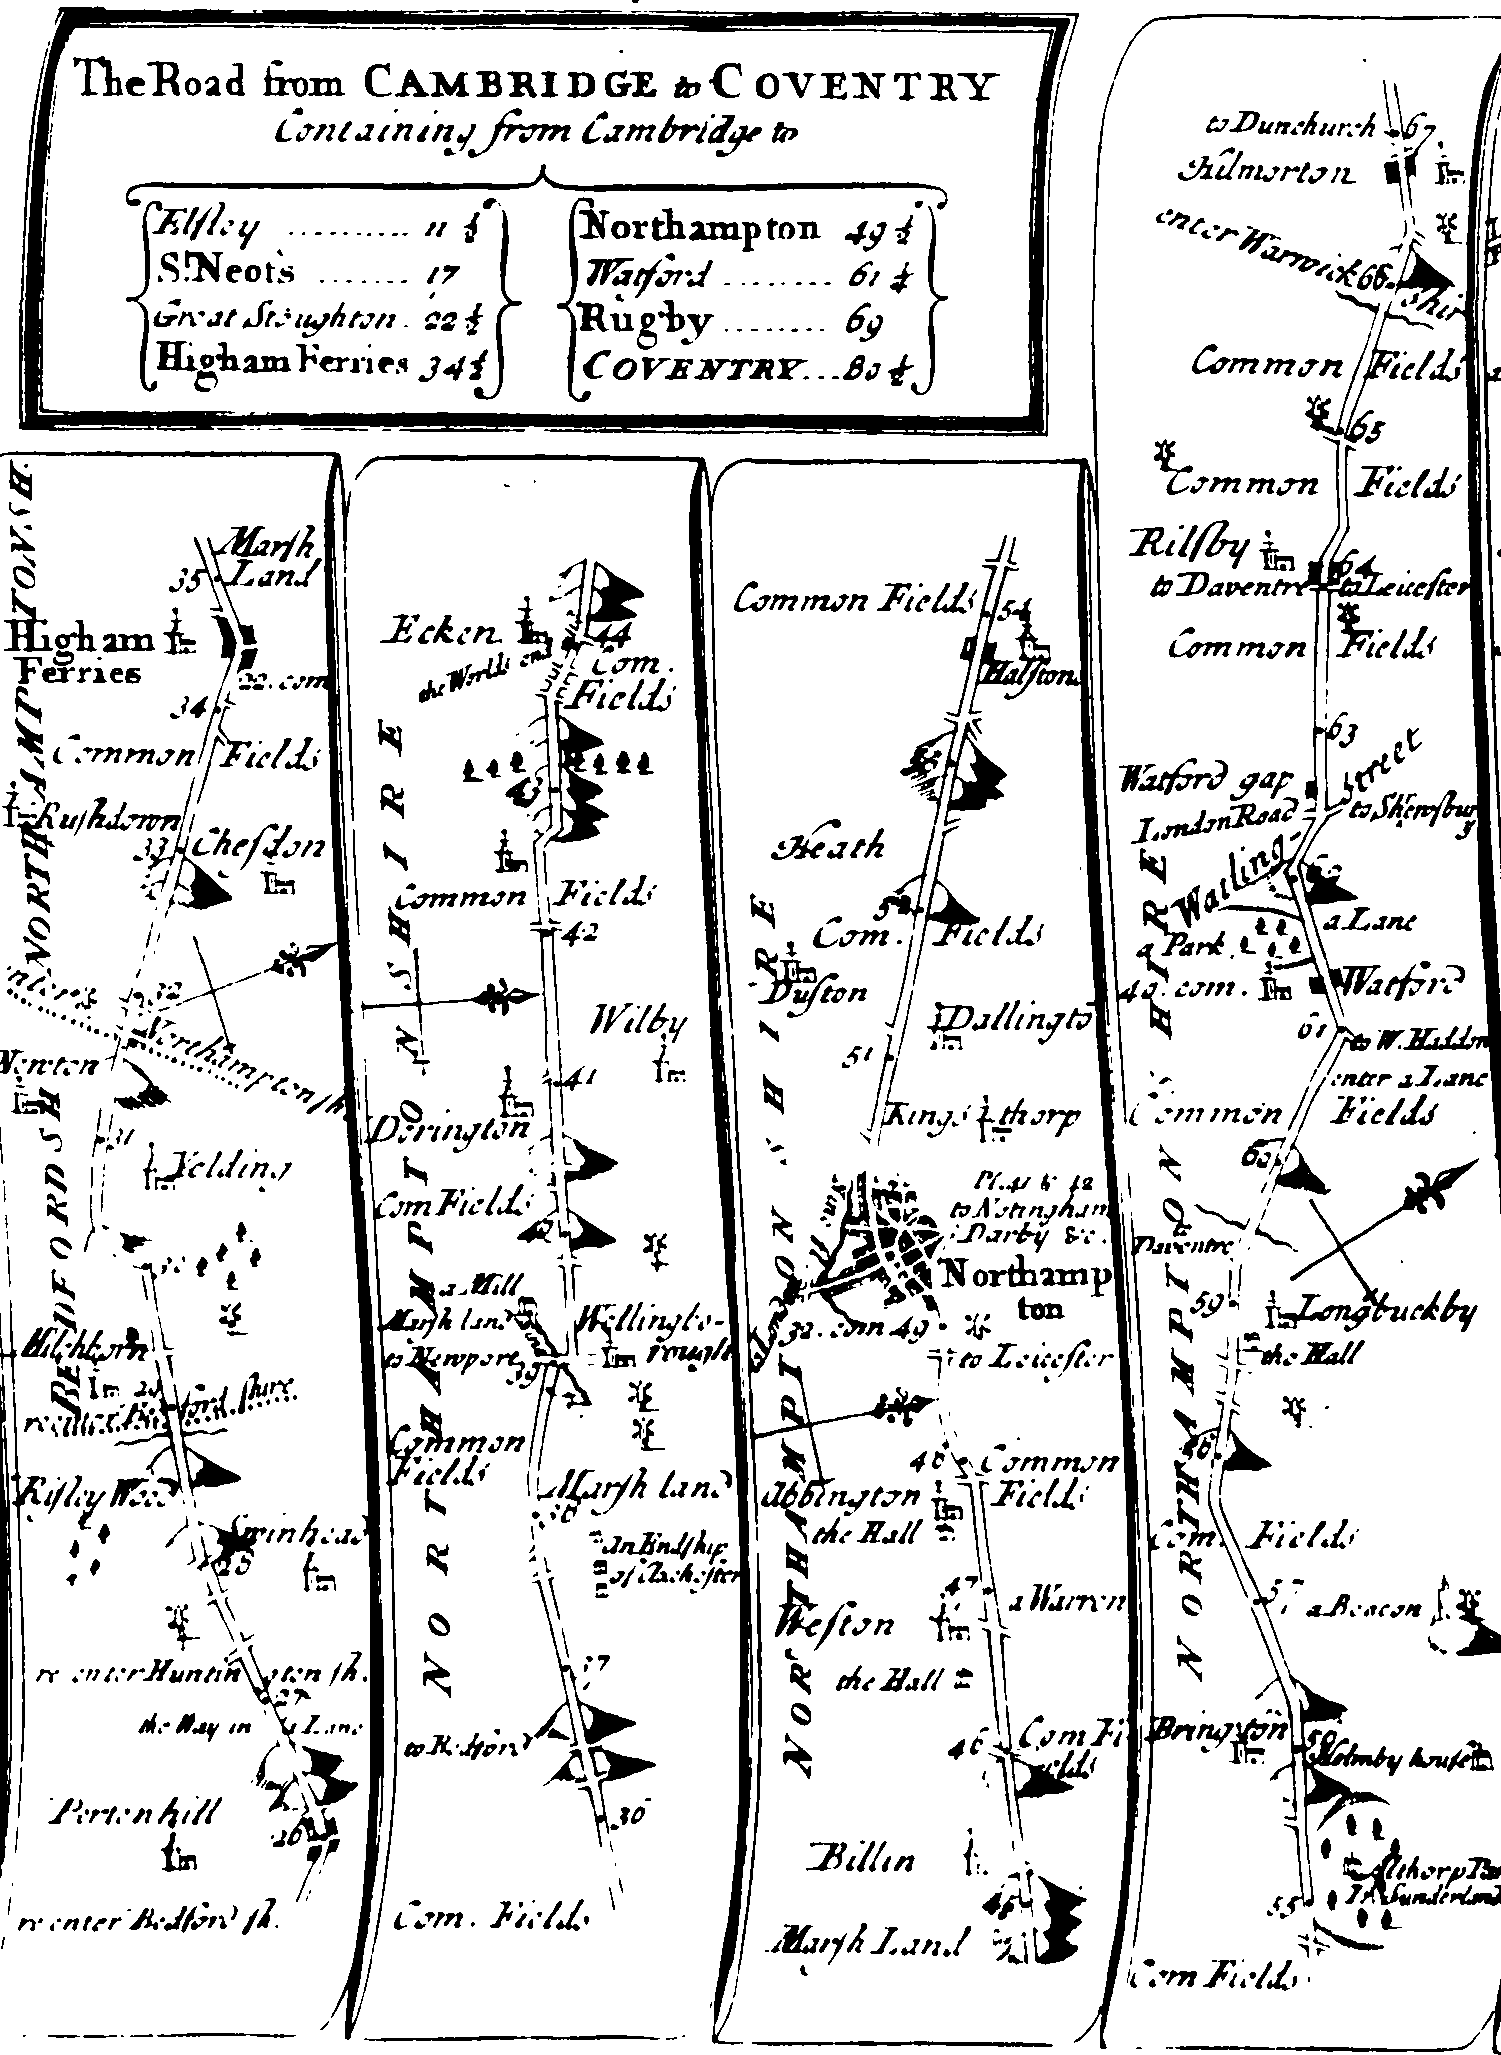 The Road from CAMBRIDGE to COVENTRY
Containing from Cambridge to
Elsley .......... 11 ½
St. Neots ....... 17
Great Stoughton . 22 ½
Higham Ferries 34 ½
Northampton 49 ½
Watford ........ 61 ¼
Rugby ........ 69
COVENTRY... 80 ½
NORTHAMPTON SH.
BEDFORDSH
Marsh
Land
35
Higham
Ferries
22. com
34
Common Fields
Rushdown
33 Chesdon
32
Northamptonsh
Newton
31
Yelding
30
Hitchborn
29
re enter Bedford shire
Risley Wood
Swinhead
28
re enter Huntington sh.
27
the Way in a Lane
Pertenhill
26
re enter Bedford sh.
NORTHAMPTONSHIRE
Ecken
44
the Worlds end
Com.
Fields
43
Common Fields
42
Wilby
41
Dorington
Com Fields
40
a Mill
Marsh land
Wellingto-
rough
to Newport
39
Common
Fields
Marsh land
38
an Endship
of Dochester
37
to Bedford
36
Com. Fields
NORTHAMPTONSHIRE
Common Fields
54
Halston
53
Heath
52
Com. Fields
Duston
Dallingto
51
Kings thorp
Pl. 41 & 42
to Notingham
Darby &c.
Northamp
ton
32. com 49
to Leicester
48 Common
Fields
Abbington
the Hall
47
a Warren
Weston
the Hall
46 Com Fi
elds
Billin
45
Marsh Land
NORTHAMPTONSHIRE
to Dunchurch 67
Hilmorton
enter Warwick shir
66
Common Fields
65
Common Fields
Rilsby
64
to Daventre to Leicester
Common Fields
63
Watford gap
London Road
to Shewsbury
Watling Street
62
a Lane
a Park
40. com.
Watford
61
to W. Haddon
enter a Lane
Common Fields
60
to
Daventre
59
Longbuckby
the Hall
58
Com. Fields
57 a Beacon
Brington
56
Holmby house
Althorp Pa
Ld. Sunderland
55
Com Fields